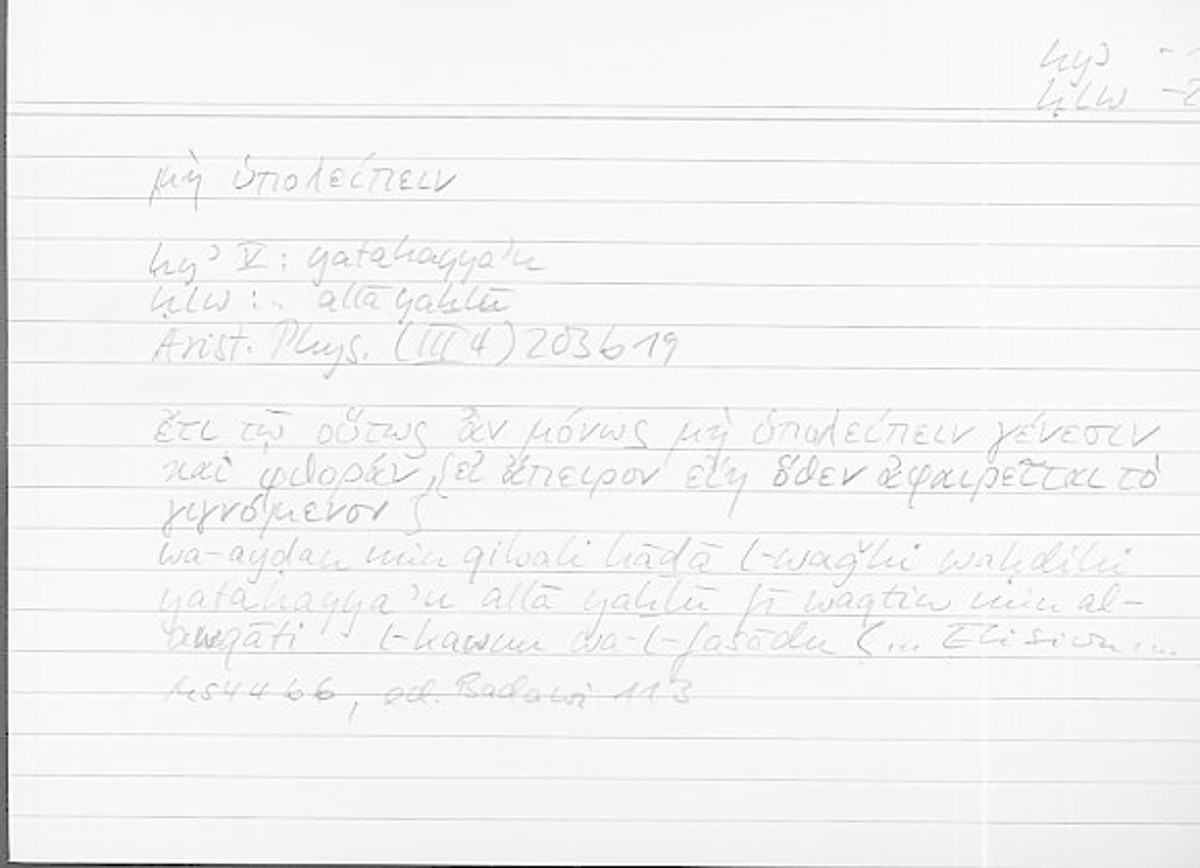 hyʾ -1
ḫlw -2
μὴ ὑπολείπειν
hyʾ V: yatahayyaʾu
ḫlw : allā yaḫlū
Arist. Phys. (III 4) 203b19
ἔτι τῷ οὕτως ἂν μόνως μὴ ὑπολείπειν γένεσιν
καὶ φθοράν, ⟨εἰ ἄπειρον εἴη ὅθεν ἀφαιρεῖται τὸ
γιγνόμενον⟩
wa-ayḍan min qibali hāḏā l-waǧhi waḥdihi
yatahayyaʾu allā yaḫlū fī waqtin min al-
awqāti l-kawnu wa-l-fasādu ⟨... Elision ...
ed. Badawi 113